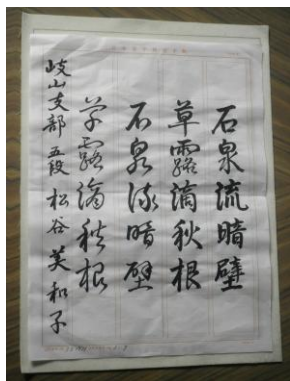 石泉流暗壁
草露滴秋根
石泉流暗壁
草露滴秋根
岐山支部 五段 松谷美和子